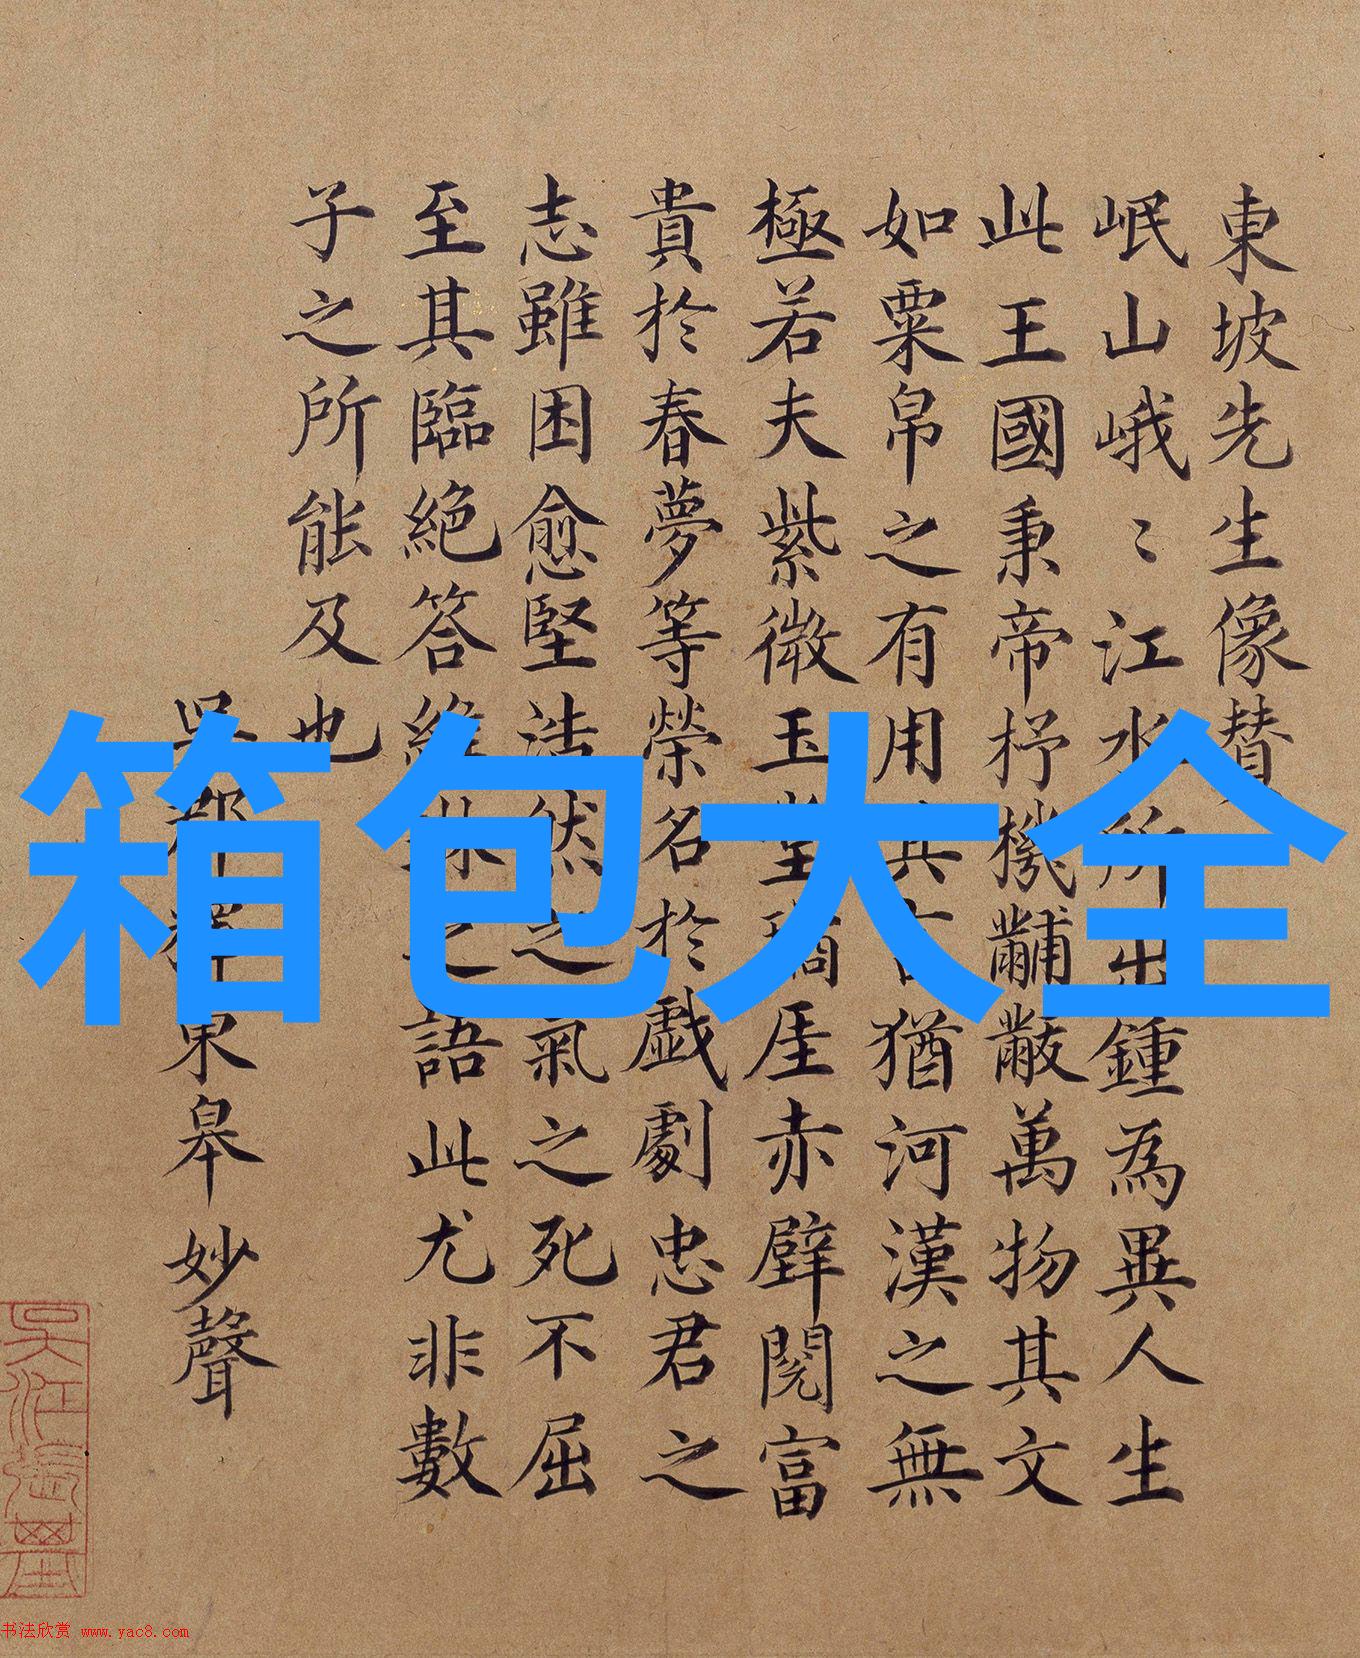 東坡先生像賛
岷山峨〻江水所出鍾為異人生
此王國秉帝杼機黼黻萬物其文
如粟帛之有用其言猶河漢之無
極若夫紫微玉堂瓊厓赤壁閱富
貴於春夢等榮名於戯劇忠君之
志雖困愈堅浩然之氣之死不屈
至其臨絕答維琳之語此尤非數
子之所能及也
吳郡釋東皋妙聲
箱包大全
书法欣赏 www.yac8.com